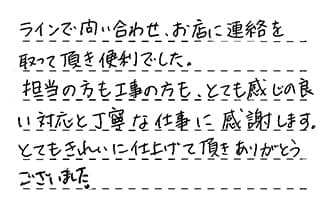 ラインで問い合わせ、お店に連絡を
取って頂き便利でした。
担当の方も工事の方も、とても感じの良
い対応と丁寧な仕事に感謝します。
とてもきれいに仕上げて頂きありがとう
ございました。